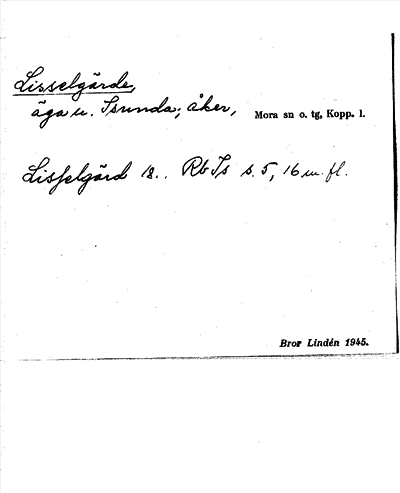 Lisselgärde,
äga u. Isunda; åker, Mora sn o. tg, Kopp. l.
Lisselgärd 18.. Rb Is s. 5, 16 m. fl.
Bror Lindén 1945.